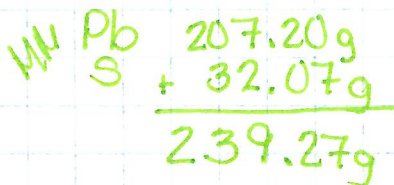 MM Pb 207.20g
S + 32.07g
239.27g